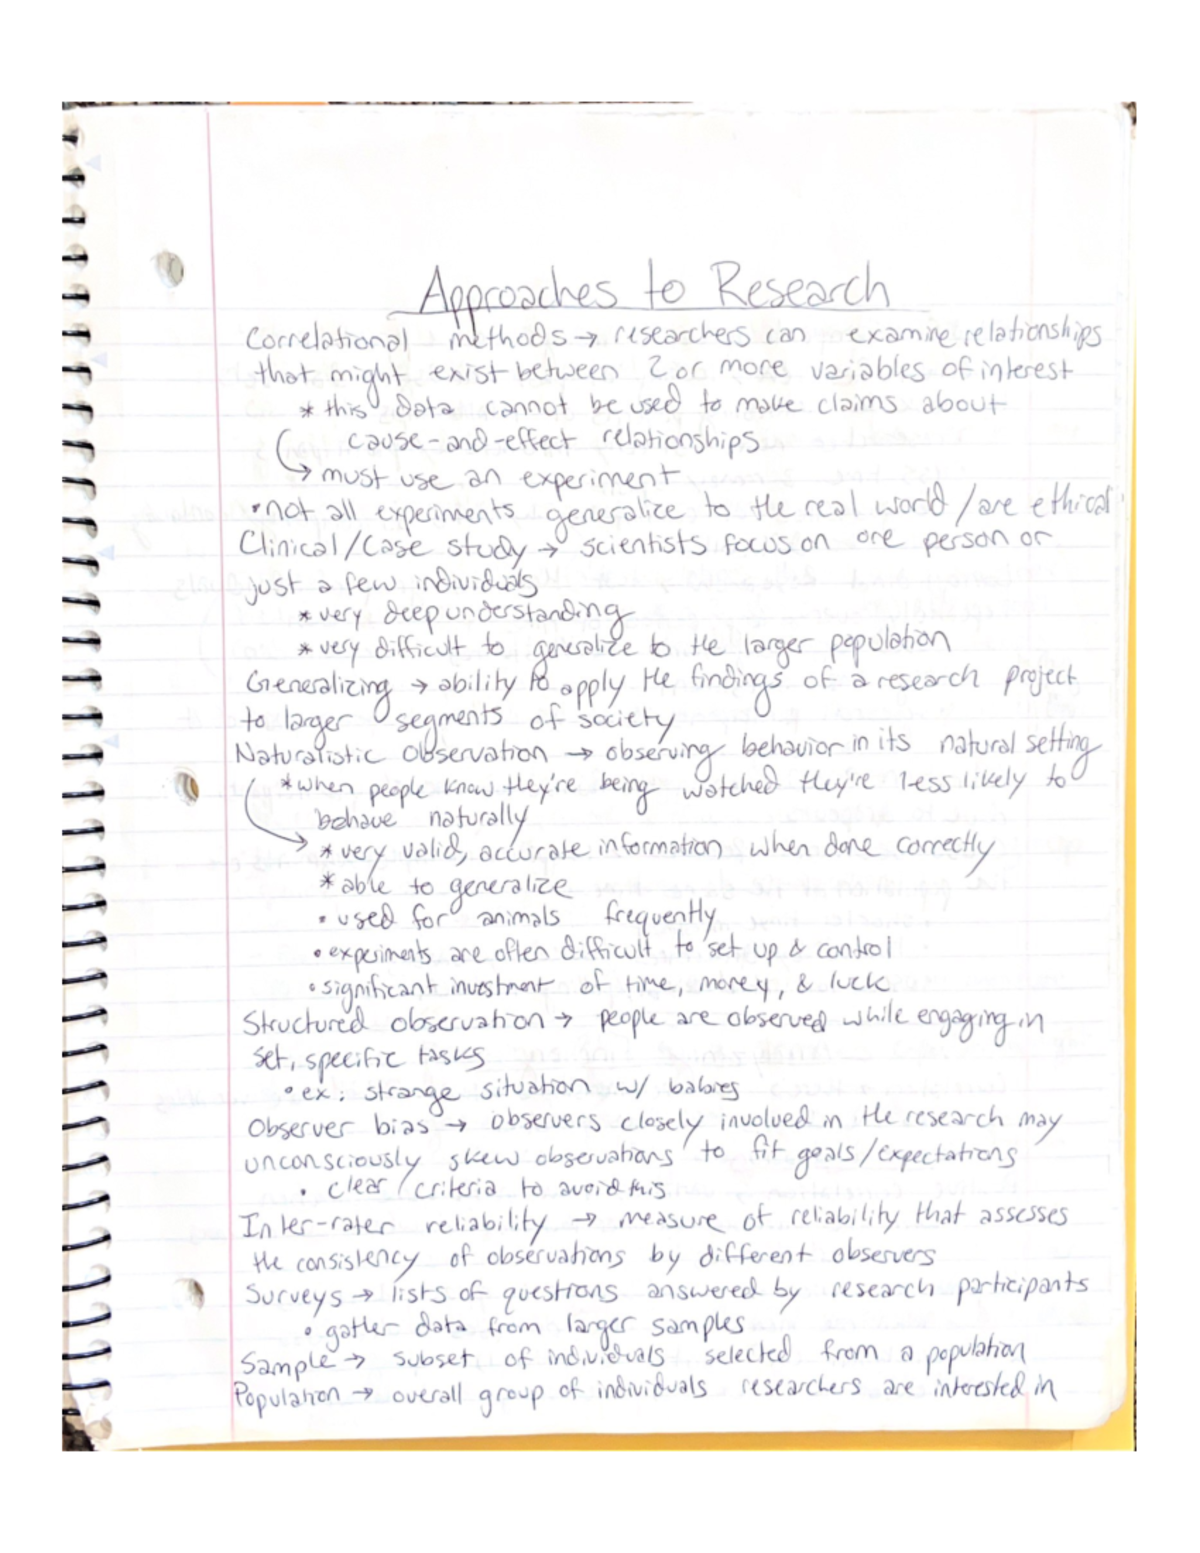 Approaches to Research
Correlational methods → researchers can examine relationships
that might exist between 2 or more variables of interest
* this data cannot be used to make claims about
cause-and-effect relationships
↳ must use an experiment
• not all experiments generalize to the real world / are ethical
Clinical/Case study → scientists focus on one person or
just a few individuals
* very deep understanding
* very difficult to generalize to the larger population
Generalizing → ability to apply the findings of a research project
to larger segments of society
Naturalistic observation → observing behavior in its natural setting
* when people know they're being watched they're less likely to
behave naturally
* very valid, accurate information when done correctly
* able to generalize
• used for animals frequently
• experiments are often difficult to set up & control
• significant investment of time, money, & luck
Structured observation → people are observed while engaging in
set, specific tasks
• ex: strange situation w/ babies
Observer bias → observers closely involved in the research may
unconsciously skew observations to fit goals/expectations
• clear criteria to avoid this
Inter-rater reliability → measure of reliability that assesses
the consistency of observations by different observers
Surveys → lists of questions answered by research participants
• gather data from larger samples
Sample → subset of individuals selected from a population
Population → overall group of individuals researchers are interested in